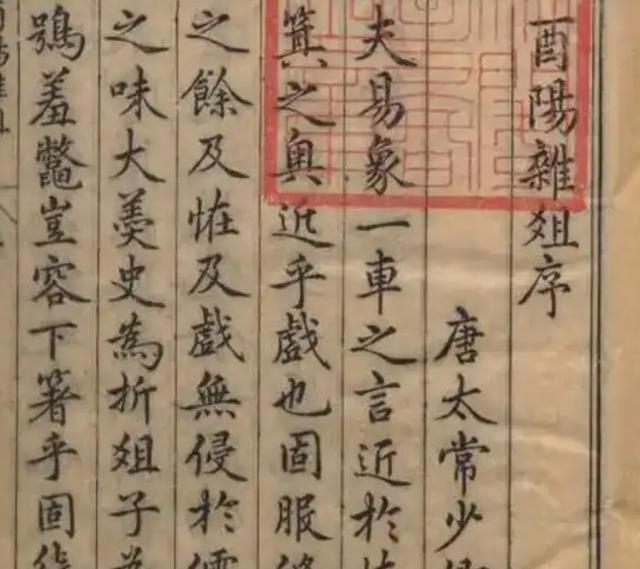 酉陽雜爼序
唐太常少
夫易象一車之言近於
箕之奥近乎戲也固服
之餘及恠及戲無侵於
之味大羹史為折爼子
鴞羞鼈豈容下箸乎固